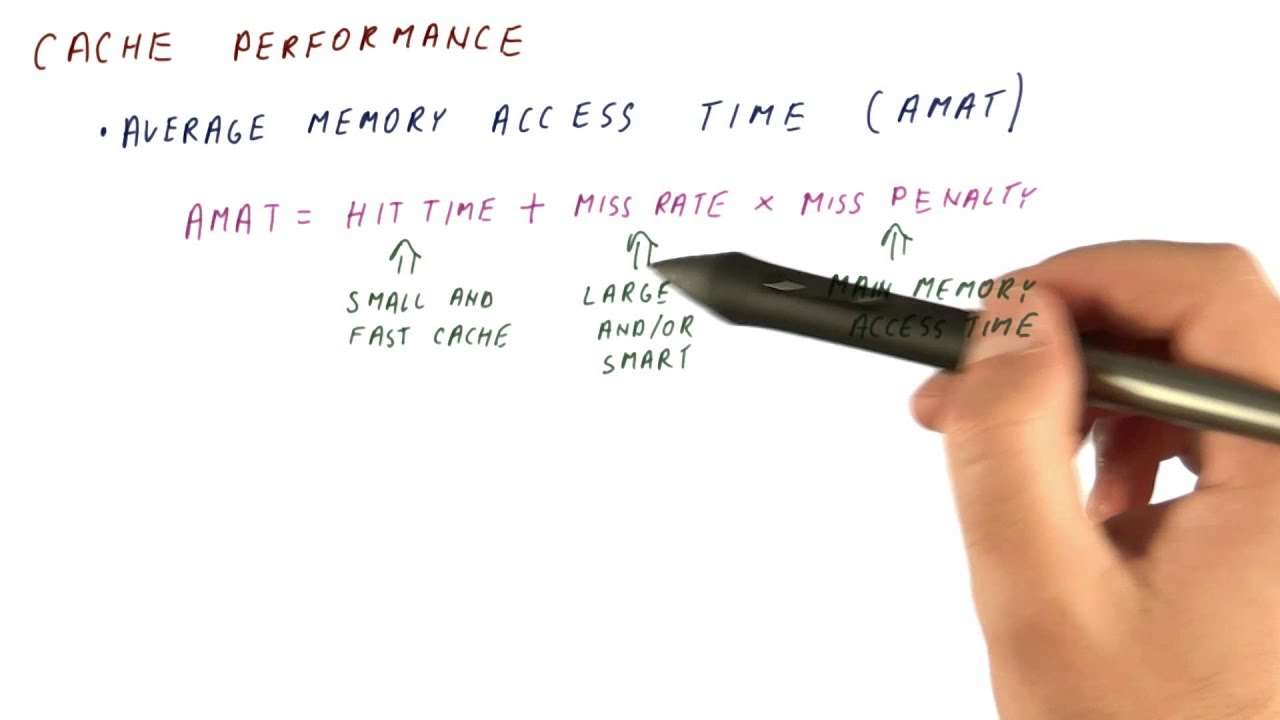 CACHE PERFORMANCE
• AVERAGE MEMORY ACCESS TIME (AMAT)
AMAT = HIT TIME + MISS RATE × MISS PENALTY
SMALL AND
FAST CACHE
LARGE
AND/OR
SMART
MAIN MEMORY
ACCESS TIME